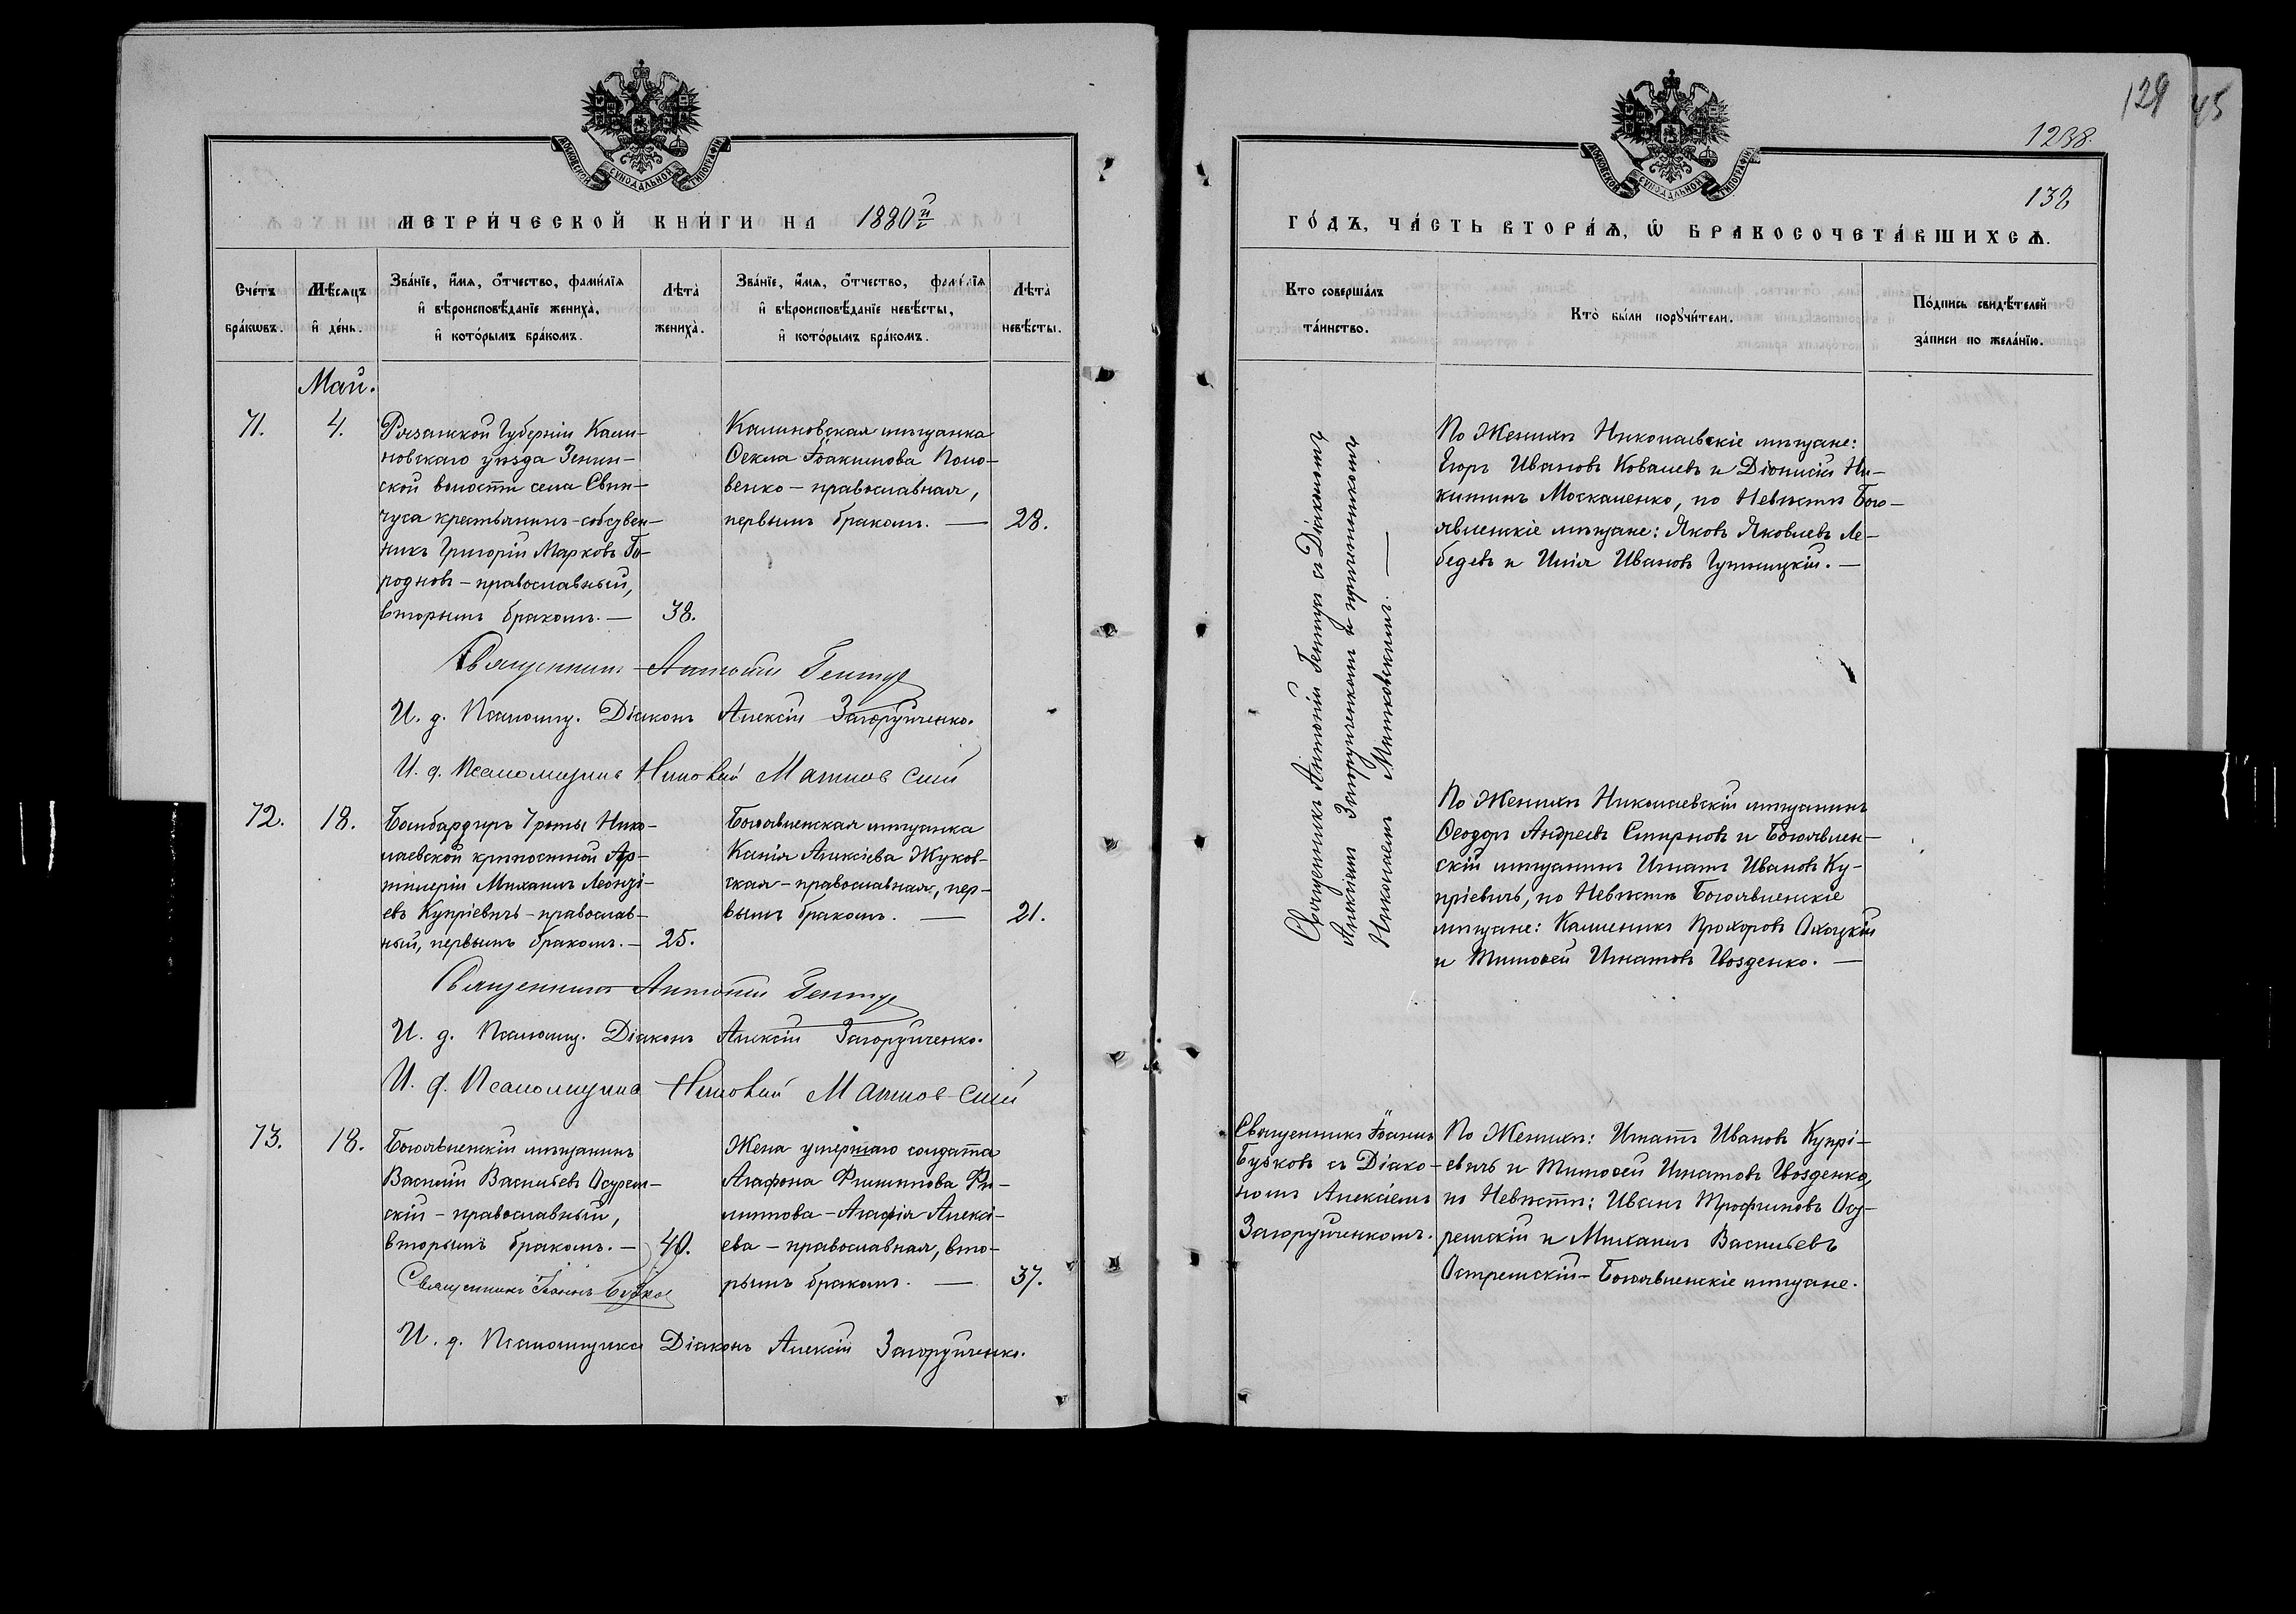 МОСКОВСКОЙ СУНОДАЛЬНОЙ ТИПОГРАФІИ
МЕТРИ́ЧЕСКОЙ КНИ́ГИ НА 1880й г
Сче́тъ бра́кѡвъ.
Мѣсяцъ и҆ де́нь.
Зва́нїе, и҆́мя, ѻ҆́тчество, фами́лїя
и҆ вѣроисповѣ́данїе жениха̀,
и҆ кото́рымъ бра́комъ.
Лѣта̀ жениха̀.
Зва́нїе, и҆́мя, ѻ҆́тчество, фами́лїя
и҆ вѣроисповѣ́данїе невѣ́сты,
и҆ кото́рымъ бра́комъ.
Лѣта̀ невѣ́сты.
Май.
71.
4.
Рязанской Губерніи Каси-
новскаго уѣзда
ской волости села Свин-
чуса крестьянинъ-собствен-
никъ Григорій Марковъ Го-
родновъ - православный,
вторымъ бракомъ. —
38.
Калиновская мѣщанка
Ѳекла Іоакимова Поло-
венко - православная,
первымъ бракомъ. —
28.
Священникъ Антоній Гентуг
И. д. Псаломщ. Діаконъ Алексій Загоруйченко.
И. д. Псаломщика Николай
72.
18.
Бомбардиръ 7 роты Нико-
лаевской крѣпостной Ар-
тилеріи Михаилъ Леонті-
евъ Купріевичъ - православ-
ный, первымъ бракомъ. —
25.
Богоявленская мѣщанка
Ксенія Алексіева Жуков-
ская - православная, пер-
вымъ бракомъ. —
21.
Священникъ Антоній Гентуг
И. д. Псаломщ. Діаконъ Алексій Загоруйченко.
И. д. Псаломщика Николай
73.
18.
Богоявленскій мѣщанинъ
Василій Васильевъ
скій - православный,
вторымъ бракомъ. —
40.
Жена умершаго солдата
Агафона Филиппова Фи-
липпова - Агафія Алексі-
ева - православная, вто-
рымъ бракомъ. —
37.
Священникъ Іоаннъ
И. д. Псаломщика Діаконъ Алексій Загоруйченко.
129 45
1238.
138
МОСКОВСКОЙ СУНОДАЛЬНОЙ ТИПОГРАФІИ
ГО́ДЪ, ЧА́СТЬ ВТОРА́Ѧ, Ѽ БРАКОСОЧЕТА́ВШИХСѦ.
Кто соверша́лъ та́инство.
Кто̀ бы́ли порꙋчи́тели.
По́дпись свидѣ́телей
за́писи по жела́нїю.
Священникъ Антоній Гентуг съ Діакономъ
Алексіемъ Загоруйченкомъ и причетникомъ
Николаемъ —
По Женихѣ Николаевскіе мѣщане:
Егоръ Ивановъ Ковалевъ и Діонисій Ни-
китинъ Москаленко, по Невѣстѣ Бого-
явленскіе мѣщане: Яковъ Яковлевъ Ле-
бедевъ и Илія Ивановъ —
По Женихѣ Николаевскій мѣщанинъ
Ѳеодоръ Андреевъ Смирновъ и Богоявлен-
скій мѣщанинъ Игнатъ Ивановъ Ку-
пріевичъ, по Невѣстѣ Богоявленскіе
мѣщане: Каленикъ Прохоровъ
и Тимоѳей Игнатовъ Гвозденко. —
Священникъ Іоаннъ
съ Діако-
номъ Алексіемъ
Загоруйченкомъ.
По Женихѣ: Игнатъ Ивановъ Купрі-
евичъ и Тимоѳей Игнатовъ Гвозденко,
по Невѣстѣ: Иванъ Трофимовъ
и Михаилъ Васильевъ
Острешскій - Богоявленскіе мѣщане.